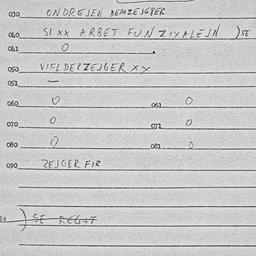 030 ONDREJEN DEMZEJGPER
040 SIXX ARBET FUN ZIYALEJN )SE
041 0
050 VIFLDERZEJGER XY
051 —
060 0 061 0
070 0 071 0
080 0 081 0
090 ZEJGER FIR
) SE REGHT